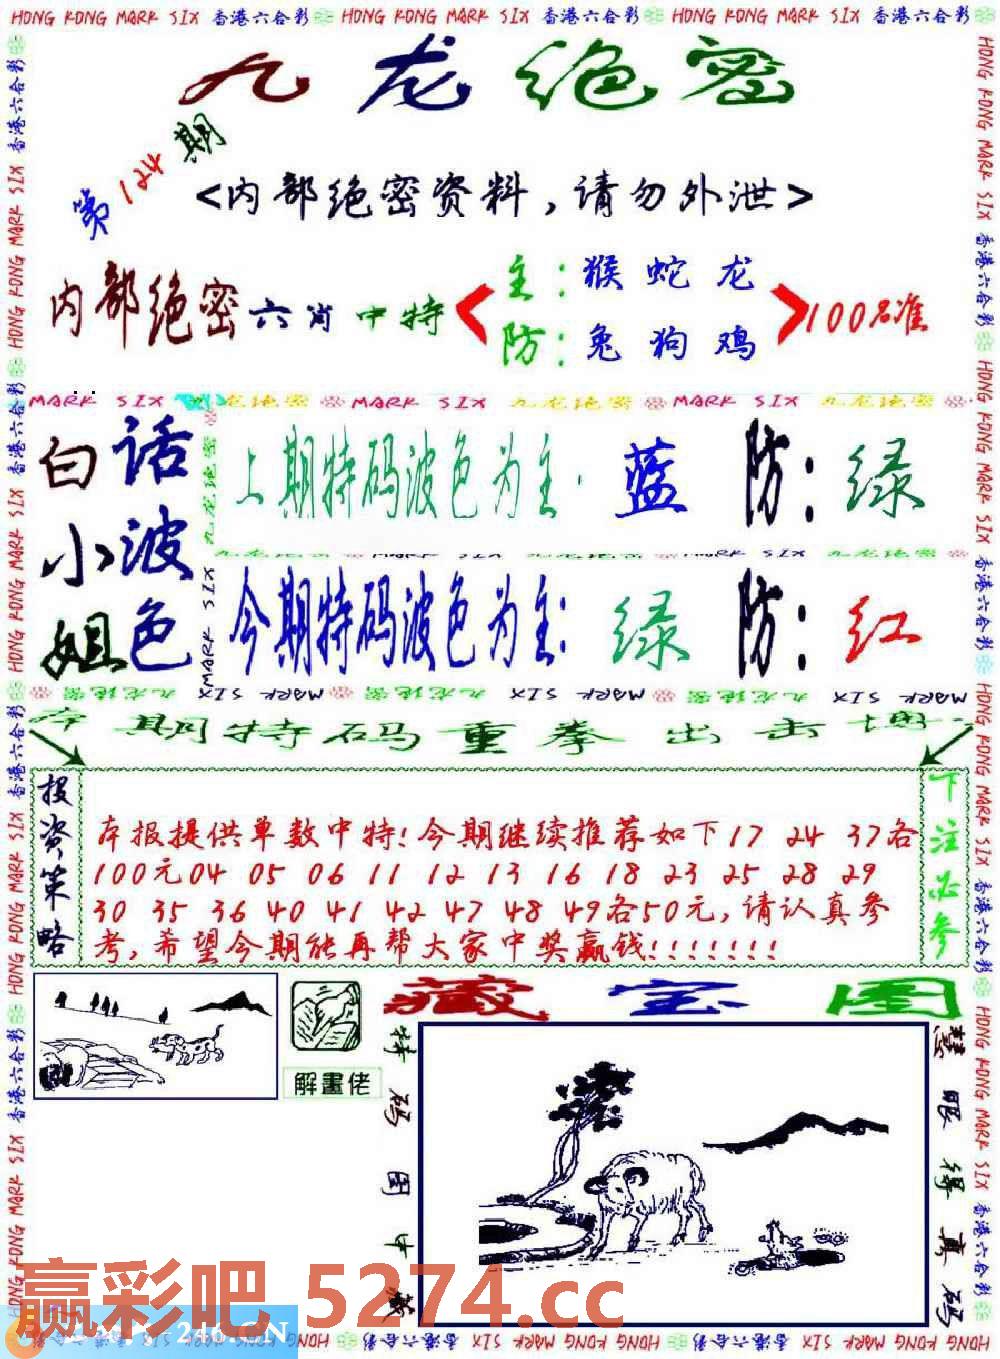 HONG KONG MARK SIX 香港六合彩 HONG KONG MARK SIX 香港六合彩 HONG KONG MARK SIX 香港六合彩
九龙绝密
第124期
<内部绝密资料,请勿外泄>
内部绝密六肖中特
主:猴蛇龙
防:兔狗鸡
100%准
MARK SIX 九龙绝密 MARK SIX 九龙绝密 MARK SIX 九龙绝密
白小姐
话波色
上期特码波色为主:蓝 防:绿
九龙绝密 MARK SIX 九龙绝密 MARK SIX 九龙绝密
今期特码波色为主:绿 防:红
本期特码重拳出击
投资策略
本报提供单数中特!今期继续推荐如下17 24 37各
100元04 05 06 11 12 13 16 18 23 25 28 29
30 35 36 40 41 42 47 48 49各50元,请认真参
考,希望今期能再帮大家中奖赢钱!!!!!!!
下注必参
藏宝图
解畫佬
特码图中藏
慧眼得真码
赢彩吧 5274.cc
246.CN
HONG KONG MARK SIX 香港六合彩